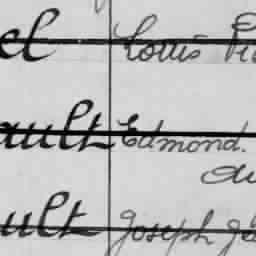 el Louis
ault Edmond.
ult Joseph